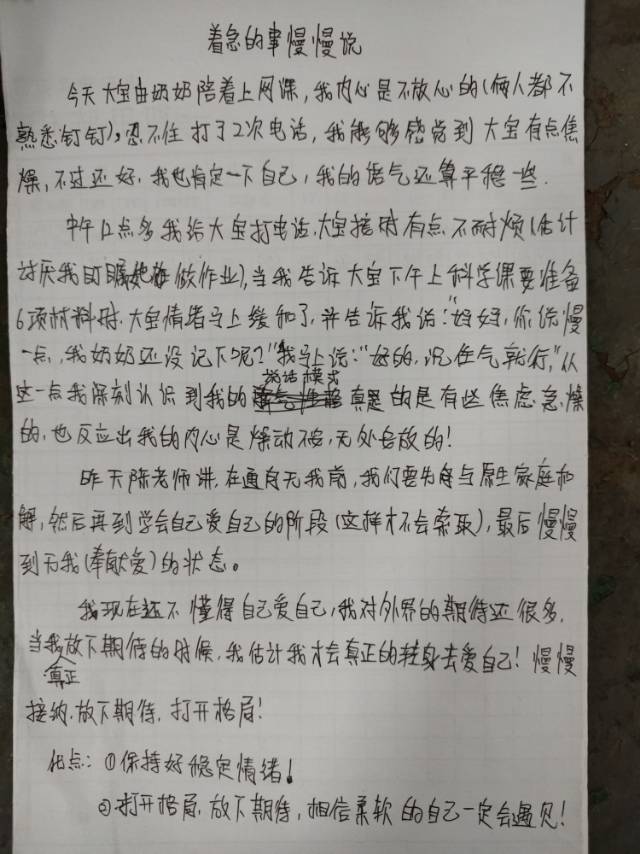 着急的事慢慢说
今天大宝由奶奶陪着上网课,我内心是不放心的(俩人都不
熟悉钉钉),忍不住打了2次电话,我能够感觉到大宝有点焦
燥,不过还好,我也肯定一下自己,我的语气还算平稳一些.
中午12点多我给大宝打电话,大宝接时有点不耐烦(估计
讨厌我叮嘱她做作业),当我告诉大宝下午上科学课要准备
6项材料时.大宝情绪马上缓和了,并告诉我说:"妈妈,你说慢
一点,我奶奶还没记下呢?"我马上说:"好的,沉住气就行,"从
这一点我深刻认识到我的说话模式真是的是有些焦虑.急.燥
的,也反应出我的内心是燥动不安,无处安放的!
昨天陈老师讲,在通向无我前,我们要先与原生家庭和
解,然后再到学会自己爱自己的阶段(这样才不会索取),最后慢慢
到无我(奉献爱)的状态。
我现在还不懂得自己爱自己,我对外界的期待还很多,
当我真正放下期待的时候,我估计我才会真正的转身去爱自己!慢慢
接纳.放下期待,打开格局!
化点:①保持好稳定情绪!
②打开格局,放下期待,相信柔软的自己一定会遇见!